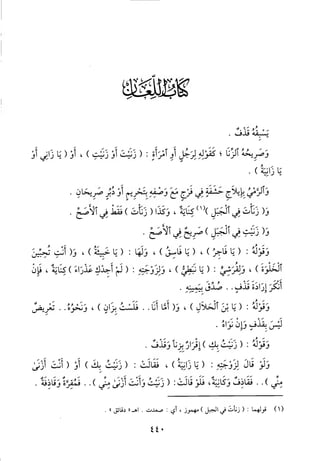 كتاب اللعان
يسبقه قذف .
وصريحه الزنا ؛ كقوله لرجل أو امرأة : ( زنيت أو زنيت ) ، أو ( يا زاني أو
يا زانية ) .
والرمي بإيلاج حشفة في فرج مع وصفه بتحريم أو دبر صريحان .
و( زنأت في الجبل )(١) كناية ، وكذا ( زنأت ) فقط في الأصح .
و( زنيت في الجبل ) صريح في الأصح .
وقوله : ( يا فاجر ) ، ( يا فاسق ) ، ولها : ( يا خبيثة ) ، و( أنت تحبين
الخلوة ) ، ولقرشي : ( يا نبطي ) ، ولزوجته : ( لم أجدك عذراء ) كناية ، فإن
أنكر إرادة قذف . . صدق بيمينه .
وقوله : ( يا بن الحلال ) ، و( أما أنا . . فلست بزان ) ، ونحوه . . تعريض
ليس بقذف وإن نواه .
وقوله : ( زنيت بك ) إقرار بزنا وقذف .
ولو قال لزوجته : ( يا زانية ) ، فقالت : ( زنيت بك ) أو ( أنت أزنى
مني ) . . فقاذف وكانية ، فلو قالت : ( زنيت وأنت أزنى مني ) . . فمقرة وقاذفة .
(١) قولهما : ( زنأت في الجبل ) مهموز ، أي : صعدت . اهـ « دقائق » .
٤٤٠